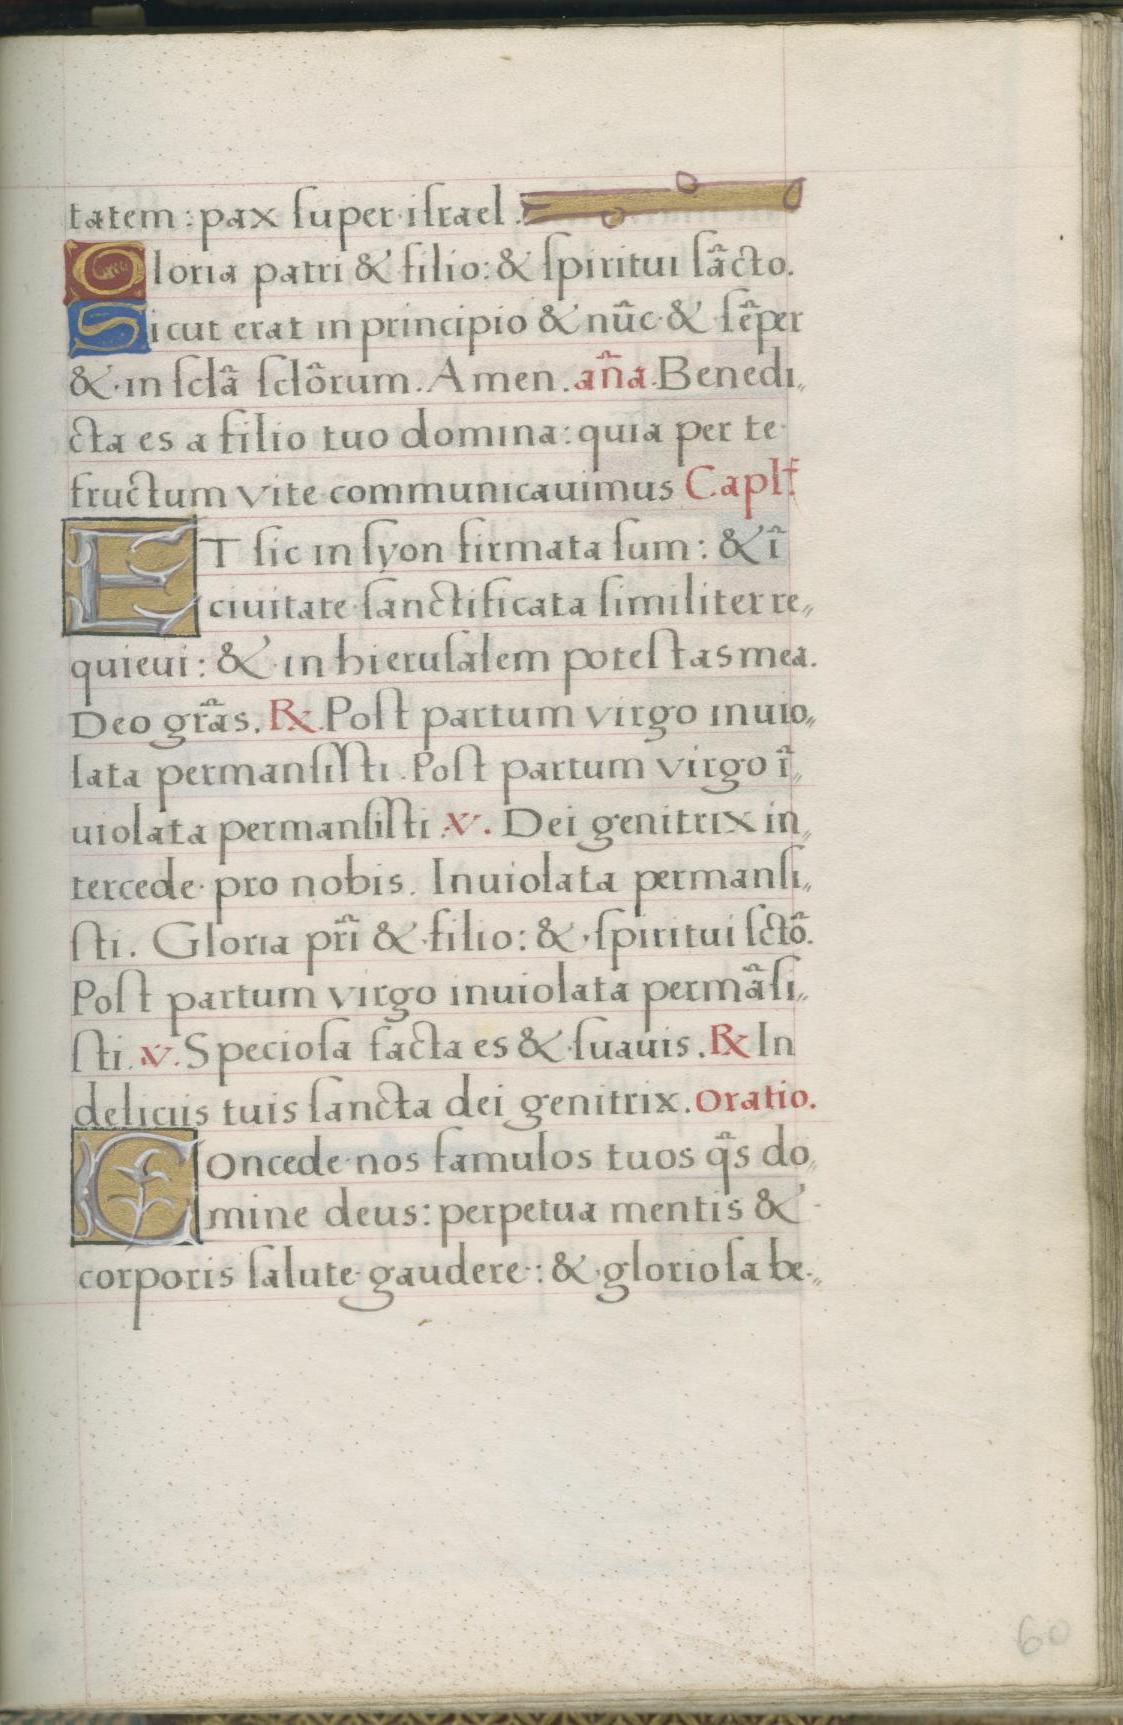 tatem : pax ſuper iſrael .
Gloria patri & filio : & ſpiritui ſãcto.
Sicut erat in principio & nũc & ſẽper
& in ſclã ſclõrum . Amen . añã . Benedi„
cta es a filio tuo domina : quia per te
fructum vite communicauimus Caplꝉ.
ET ſic in ſyon firmata ſum : & ĩ
ciuitate ſanctificata ſimiliter re„
quieui : & in hieruſalem poteſtas mea.
Deo grãs. ℟. Poſt partum virgo inuio„
lata permanſiſti . Poſt partum virgo ĩ„
uiolata permanſiſti .℣. Dei genitrix in„
tercede pro nobis . Inuiolata permanſi„
ſti . Gloria pr̃i & filio : & ſpiritui ſctõ.
Poſt partum virgo inuiolata permãſi„
ſti. ℣. Specioſa facta es & ſuauis . ℟ In
deliciis tuis ſancta dei genitrix. Oratio.
Concede nos famulos tuos q̃s do„
mine deus : perpetua mentis &
corporis ſalute gaudere : & glorioſa be„
60